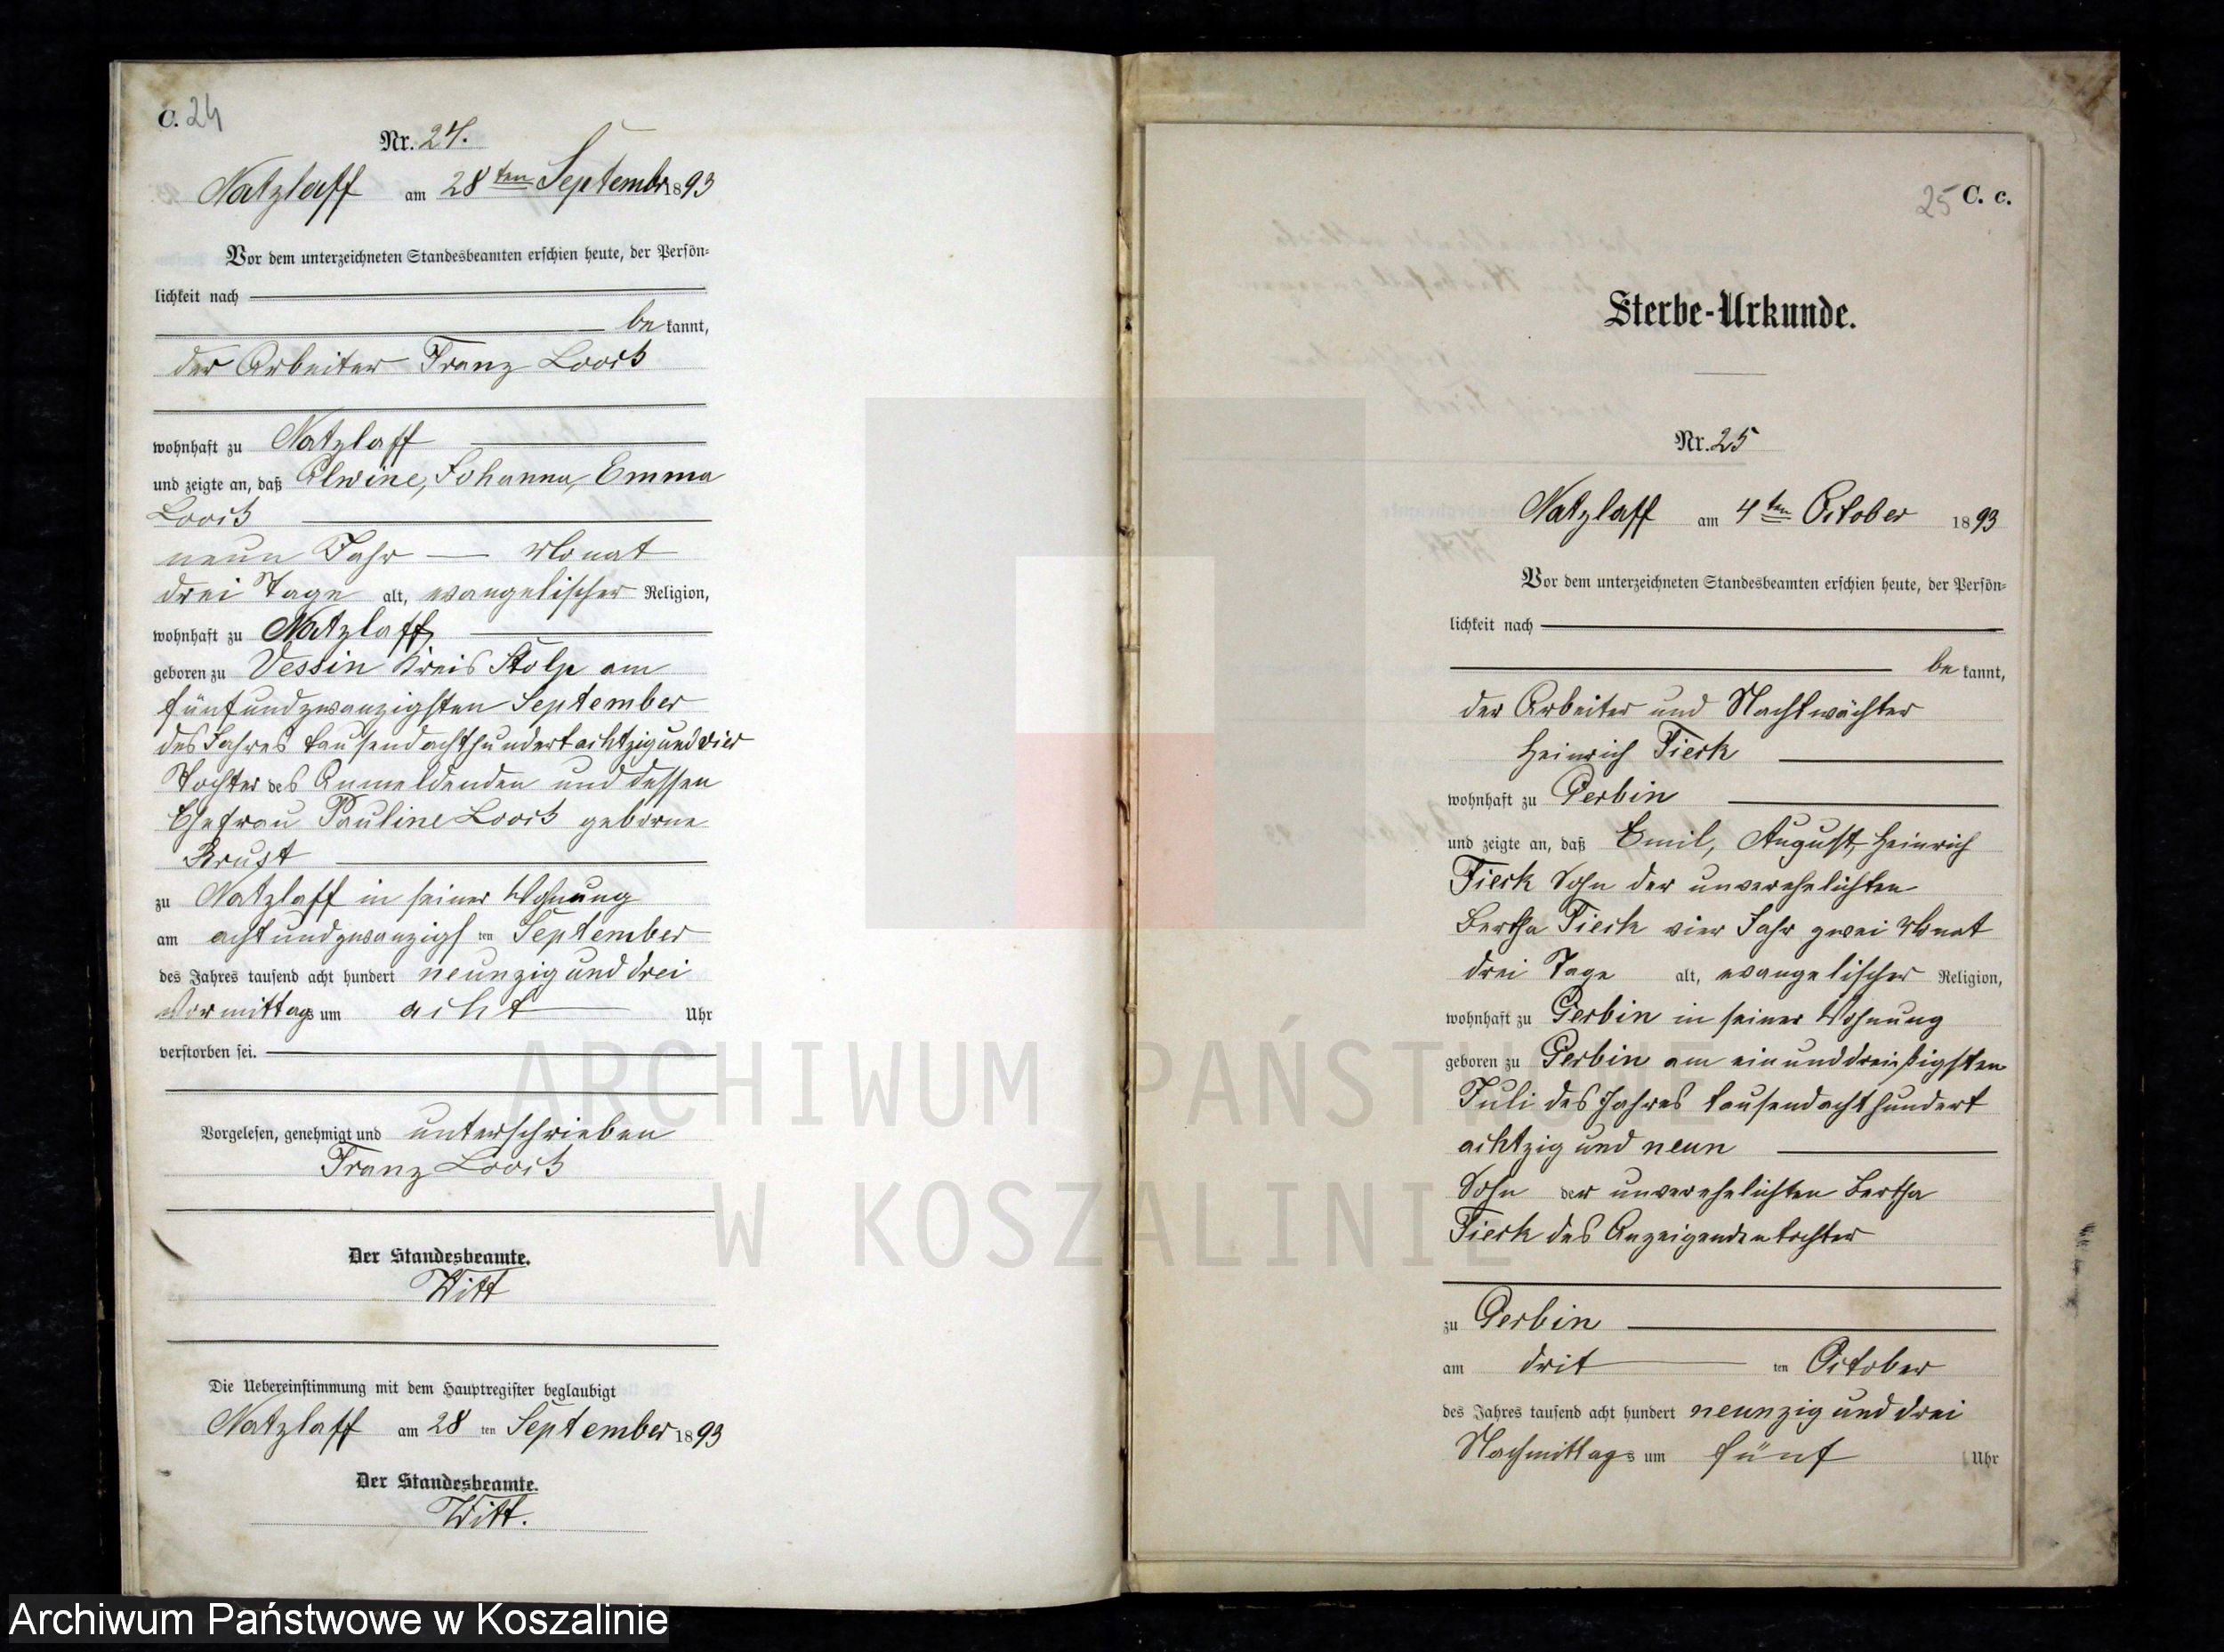 C. 24
Nr. 24.
Natzlaff am 28ten September 1893
Vor dem unterzeichneten Standesbeamten erschien heute, der Persön-
lichkeit nach
be kannt,
der Arbeiter Franz Loock
wohnhaft zu Natzlaff
und zeigte an, daß Alwine, Johanna, Emma
Loock
neun Jahr — Monat
drei Tage alt, evangelischer Religion,
wohnhaft zu Natzlaff
geboren zu Vessin Kreis Stolp am
fünfundzwanzigsten September
des Jahres tausendachthundertachtzigundvier
Tochter des Anmeldenden und dessen
Ehefrau Pauline Loock geborne
Krust
zu Natzlaff in seiner Wohnung
am achtundzwanzigsten September
des Jahres tausend acht hundert neunzig und drei
Vormittags um acht Uhr
verstorben sei.
Vorgelesen, genehmigt und unterschrieben
Franz Loock
Der Standesbeamte.
Witt
Die Uebereinstimmung mit dem Hauptregister beglaubigt
Natzlaff am 28 ten September 1893
Der Standesbeamte.
Witt.
25 C. c.
Sterbe-Urkunde.
Nr. 25
Natzlaff am 4ten October 1893
Vor dem unterzeichneten Standesbeamten erschien heute, der Persön-
lichkeit nach
be kannt,
der Arbeiter und Nachtwächter
Heinrich Tieck
wohnhaft zu Gerbin
und zeigte an, daß Emil, August, Heinrich
Tieck Sohn der unverehelichten
Bertha Tieck vier Jahr zwei Monat
drei Tage alt, evangelischer Religion,
wohnhaft zu Gerbin in seiner Wohnung
geboren zu Gerbin am einunddreißigsten
Juli des Jahres tausendachthundert
achtzig und neun
Sohn der unverehelichten Bertha
Tieck des Anzeigenden tochter
zu Gerbin
am drit ten October
des Jahres tausend acht hundert neunzig und drei
Nachmittags um fünf Uhr
ARCHIWUM PAŃSTWOWE
W KOSZALINIE
Archiwum Państwowe w Koszalinie